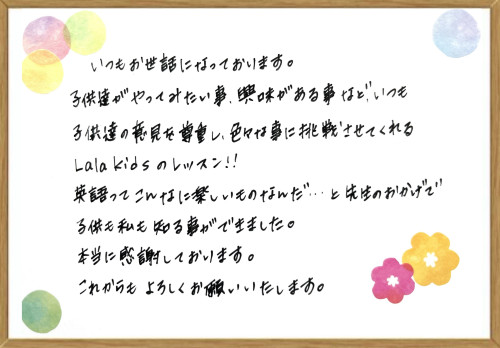 いつもお世話になっております。
子供達がやってみたい事、興味がある事など、いつも
子供達の意見を尊重し、色々な事に挑戦させてくれる
Lala Kidsのレッスン!!
英語ってこんなに楽しいものなんだ…と先生のおかげで
子供も私も知る事ができました。
本当に感謝しております。
これからもよろしくお願いいたします。